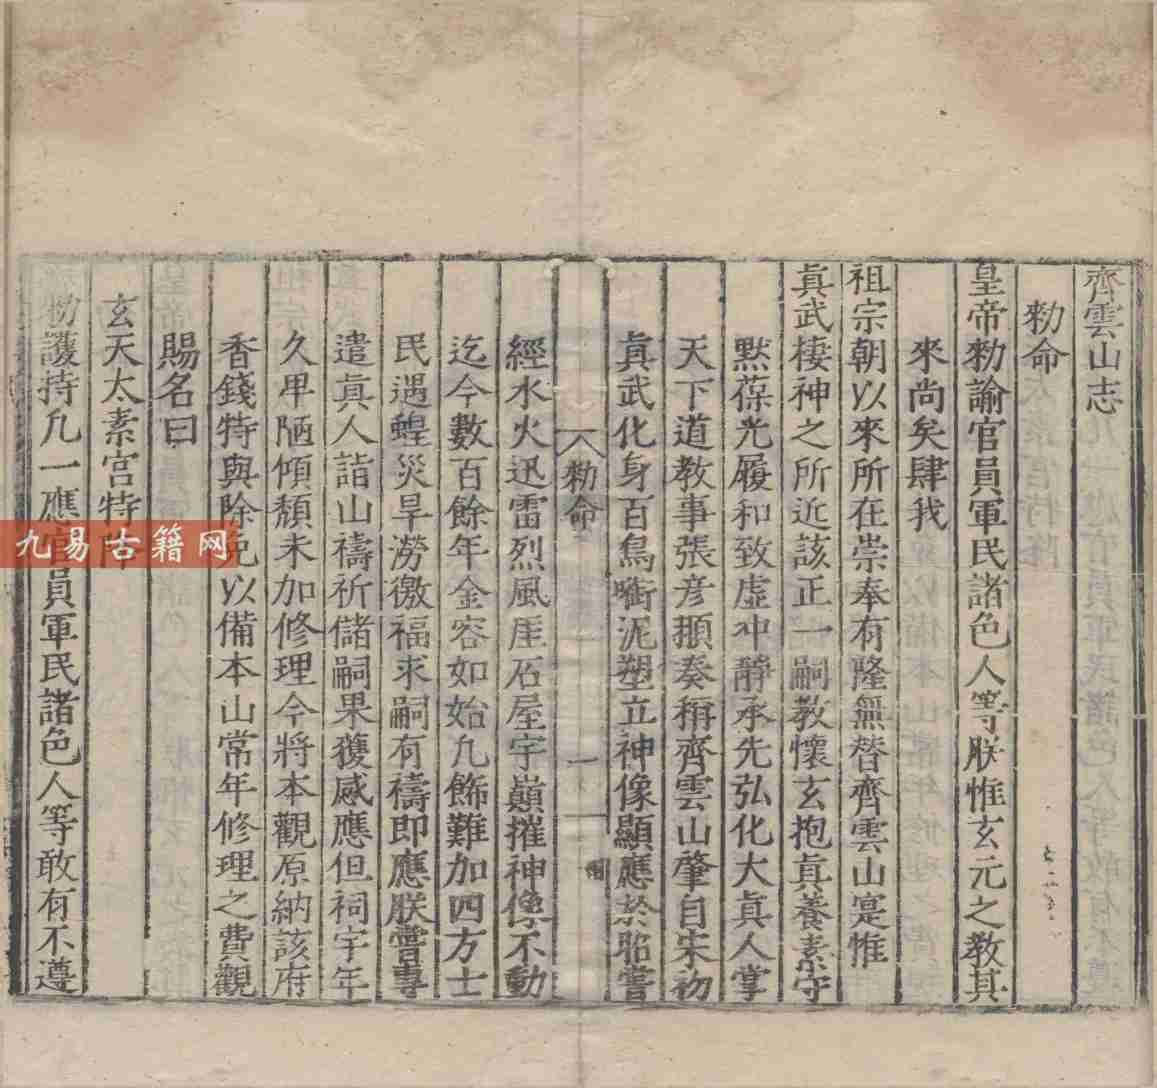 齊雲山志
勑命
皇帝勑諭官員軍民諸色人等朕惟玄元之教其
來尚矣肆我
祖宗朝以來所在崇奉有隆無替齊雲山寔惟
真武棲神之所近該正一嗣教懷玄抱真養素守
默葆光履和致虛冲靜承先弘化大真人掌
天下道教事張彦頨奏稱齊雲山肇自宋初
真武化身百鳥啣泥塑立神像顯應於昭嘗
勑命
一
經水火迅雷烈風厓石屋宇巔摧神像不動
迄今數百餘年金容如始凢飾難加四方士
民遇蝗災旱澇徼福求嗣有禱即應朕嘗專
遣真人詣山禱祈儲嗣果獲感應但祠宇年
久卑陋傾頹未加修理今將本觀原納該府
香錢特與除免以備本山常年修理之費觀
賜名曰
玄天太素宮特降
勑護持凢一應官員軍民諸色人等敢有不遵
九易古籍网